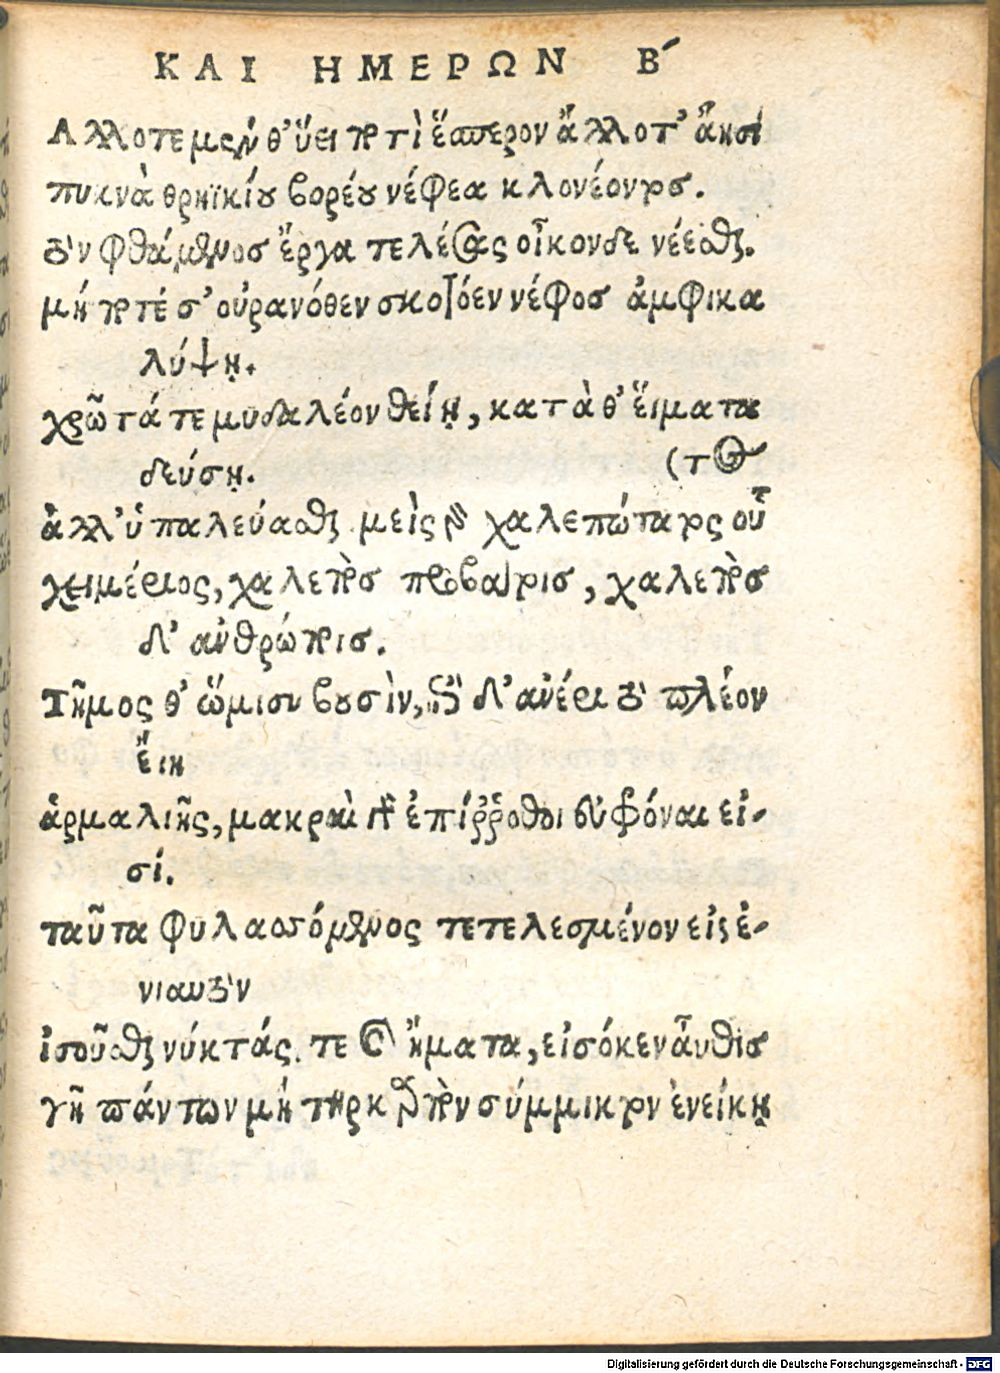 ΚΑΙ ΗΜΕΡΩΝ Β΄
Αλλοτε μὲν θ' ὕει ποτὶ ἕσπερον ἄλλοτ' ἄησι
πυκνὰ θρηϊκίου βορέου νέφεα κλονέοντος.
τὸν φθάμενος ἔργα τελέσας οἶκονδε νέεσθαι.
μή ποτέ σ' οὐρανόθεν σκοτόεν νέφος ἀμφικα
λύψῃ.
χρῶτά τε μυδαλέον θείῃ, κατὰ θ' ἕιματα
δεύσῃ. (τος
ἀλλ' ὑπαλεύασθαι μεὶς γδ χαλεπώτατος οὗ
χειμέριος, χαλεπὸς προβάτοις, χαλεπὸς
δ' ἀνθρώποις.
Τῆμος θ' ὥμισυ βουσὶν, ἐπὶ δ' ἀνέρι τὸ πλέον
ἔιη
ἁρμαλιῆς, μακραὶ γὰρ ἐπίῤῥοθοι εὐφρόναι εἰ-
σί.
ταῦτα φυλασσόμενος τετελεσμένον εἰς ἐ-
νιαυτὸν
ἰσοῦσθαι νύκτάς. τε καὶ ἤματα, εἰσόκεν ἆυθις
γῆ πάντων μήτηρ καρπὸν σύμμικτον ἐνείκῃ
Digitalisierung gefördert durch die Deutsche Forschungsgemeinschaft - DFG